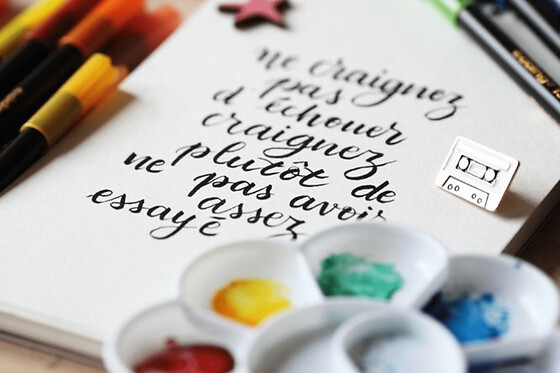 ne craignez
pas
d'échouer
craignez
plutôt de
ne pas avoir
assez
essayé